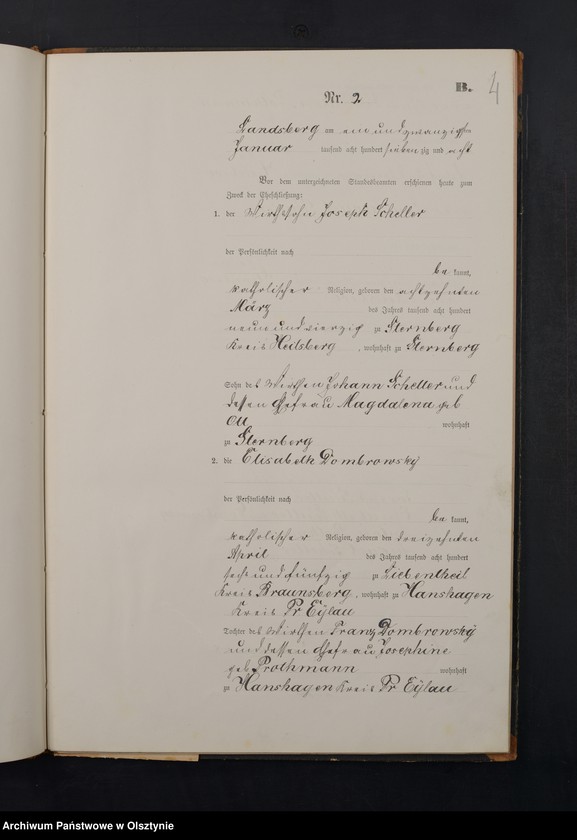 B. 4
Nr. 2
Landsberg am ein und zwanzigsten
Januar tausend acht hundert sieben zig und acht
Vor dem unterzeichneten Standesbeamten erschienen heute zum
Zweck der Eheschließung:
1. der Wirthssohn Joseph Scheller
der Persönlichkeit nach
be kannt,
katholischer Religion, geboren den achtzehnten
März des Jahres tausend acht hundert
neun und vierzig zu Sternberg
Kreis Heilsberg, wohnhaft zu Sternberg
Sohn des Wirthen Johann Scheller und
dessen Ehefrau Magdalena geb
Ott wohnhaft
zu Sternberg
2. die Elisabeth Dombrowsky
der Persönlichkeit nach
be kannt,
katholischer Religion, geboren den dreizehnten
April des Jahres tausend acht hundert
sechs und fünfzig zu Liebenthal
Kreis Braunsberg, wohnhaft zu Hanshagen
Kreis Pr Eylau
Tochter des Wirthen Franz Dombrowsky
und dessen Ehefrau Josephine
geb Prothmann wohnhaft
zu Hanshagen Kreis Pr Eylau
Archiwum Państwowe w Olsztynie